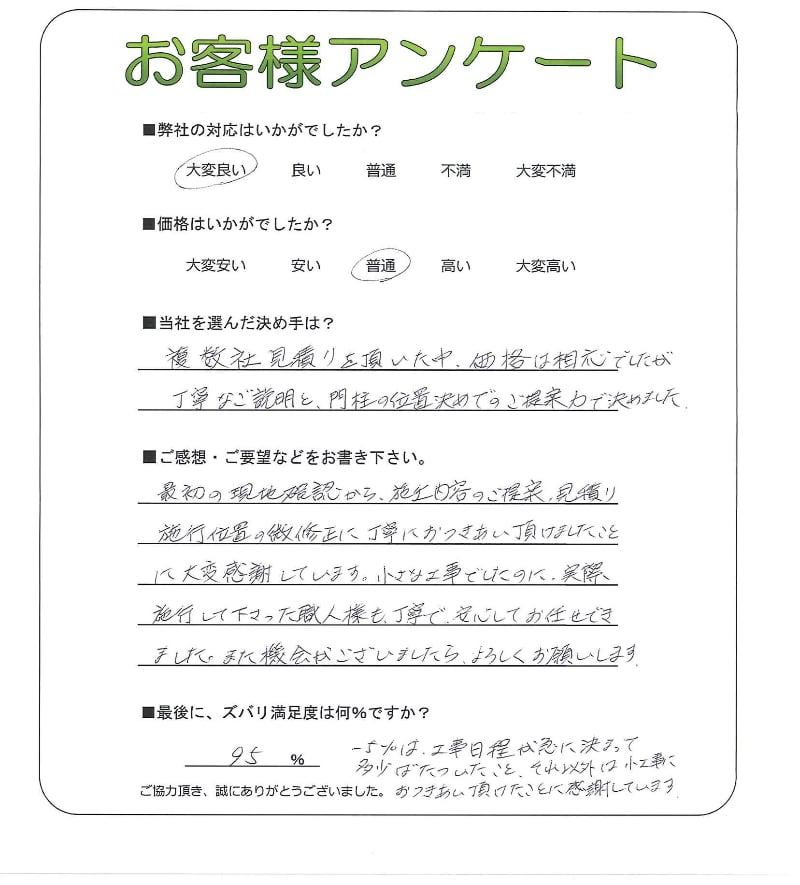 お客様アンケート
■弊社の対応はいかがでしたか？
大変良い 良い 普通 不満 大変不満
■価格はいかがでしたか？
大変安い 安い 普通 高い 大変高い
■当社を選んだ決め手は？
複数社見積りを頂いた中、価格は相応でしたが
丁寧なご説明と、門柱の位置決めでのご提案力で決めました.
■ご感想・ご要望などをお書き下さい。
最初の現地確認から、施工内容のご提案、見積り
施行位置の微修正に丁寧におつきあい頂けましたこと
に大変感謝しています。小さな工事でしたのに、実際、
施行して下さった職人様も、丁寧で、安心してお任せでき
ました。また機会がございましたら、よろしくお願いします.
■最後に、ズバリ満足度は何%ですか？
95 %
-5%は、工事日程が急に決まって
多少ばたついたこと、それ以外は小工事に
おつきあい頂けたことに感謝しています.
ご協力頂き、誠にありがとうございました。